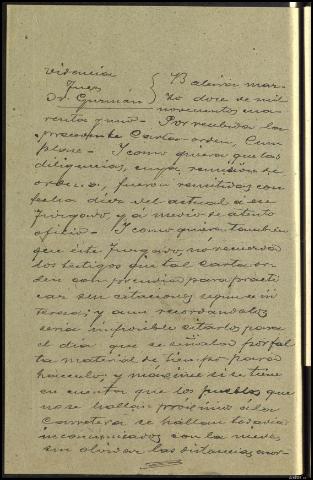 videncia
Juez
Sr. Guzmán
Baleira mar-
zo doce de mil
novecientos cua-
renta y uno - Por recibida la
precedente Carta-orden, Cum
plase - Y como quiera que las
diligencias, cuya remisión se
ordena, fueron remitidas con
fecha diez del actual á ese
Juzgado, y á medio de atento
oficio - Y como quiera tambien
que este Juzgado, no recuerda
los testigos que tal carta or-
den comprendia para practi
car sus citaciones segun se in
teresa; y aun recordandolos
seria imposible citarlos para
el dia que se señala por fal
ta material de tiempo para
hacerlo, y máxime si se tiene
en cuenta que los pueblos que
no se hallan próximos a la
Carretera se hallan todavia
incomunicados con la nieve,
sin olvidar las distancias enor-